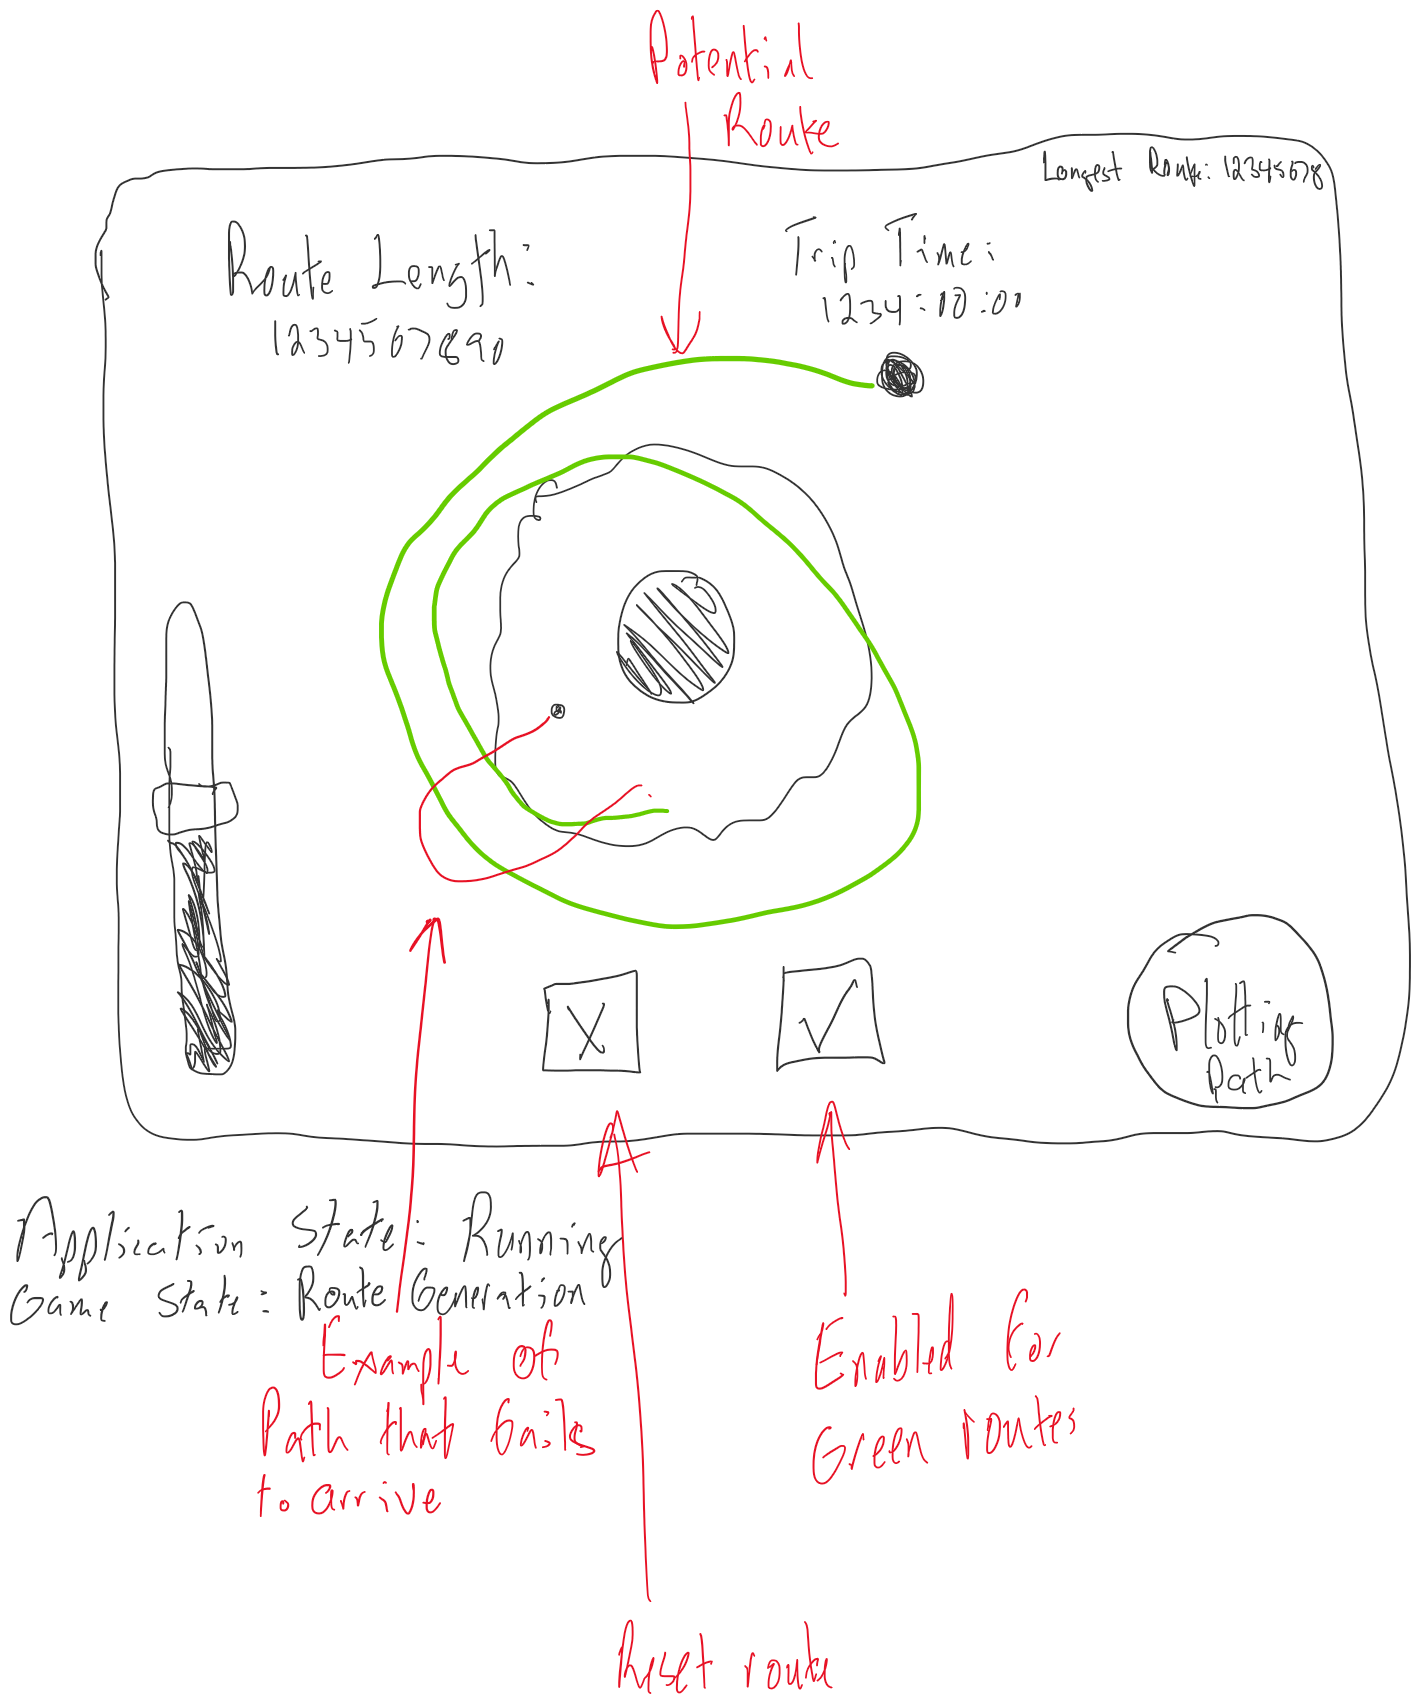 Potential
Route
Longest Route: 12345678
Route Length:
1234567890
Trip Time:
1234:00:00
X
Plotting
Path
Application State: Running
Game State: Route Generation
Example of
Path that fails
to arrive
Enabled for
Green routes
Reset route